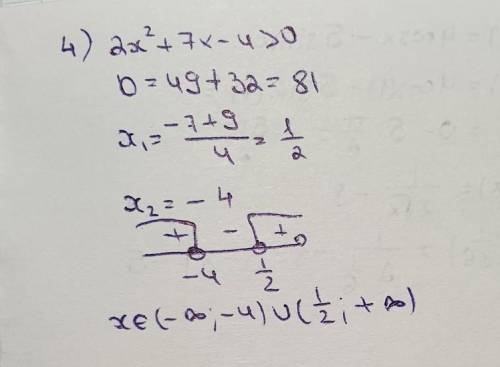 4) 2x² + 7x - 4 > 0
D = 49 + 32 = 81
x₁ = (-7+9)/4 = 1/2
x₂ = - 4
+ - +
-4 1/2
x ∈ (-∞; -4) ∪ (1/2; +∞)